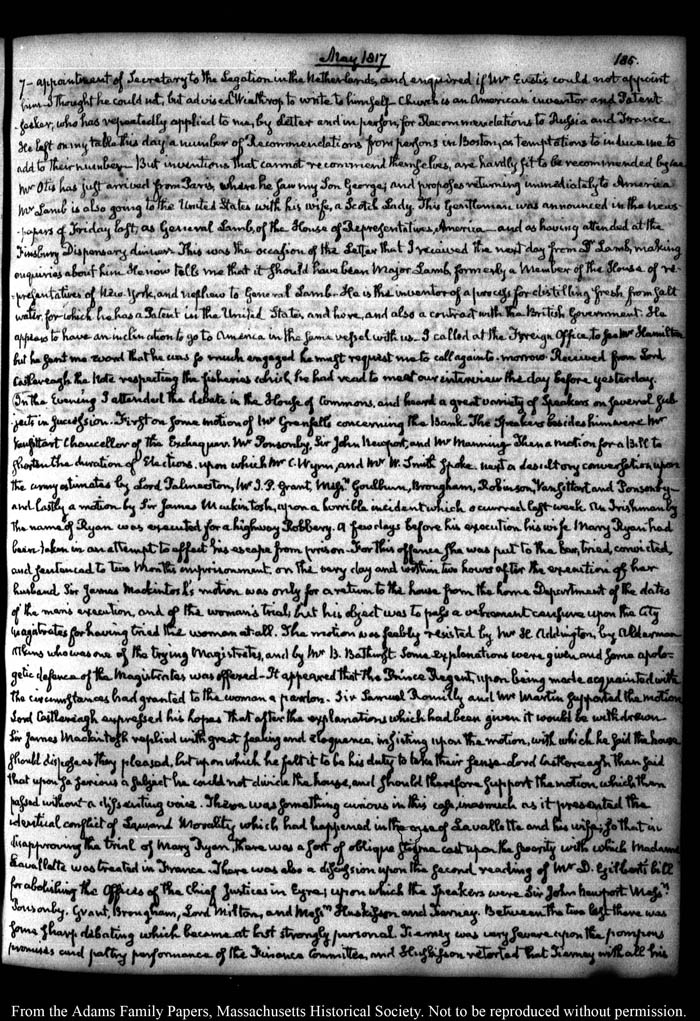 May 1817 185.
7— appointment of Secretary to the Legation in the Netherlands, and enquired if Mr Eustis could not appoint
him. I thought he could not, but advised Winthrop to write to himself. Church is an American inventor and Patent
seeker, who has repeatedly applied to me, by Letter and in person, for Recommendations to Russia and France.
He left on my table this day a number of Recommendations from persons in Boston, as temptations to induce me to
add to their number. But inventions that cannot recommend themselves, are hardly fit to be recommended by me
Mr Otis has just arrived from Paris, where he saw my Son George; and proposes returning immediately to America
Mr Lamb is also going to the United States with his wife, a Scotch Lady. This Gentleman was announced in the news-
-papers of Friday last, as General Lamb, of the House of Representatives, America—and as having attended at the
Finsbury Dispensary dinner. This was the occasion of the Letter that I received the next day from Dr Lamb, making
enquiries about him. He now tells me that it should have been Major Lamb, formerly a Member of the House of re-
-presentatives of New-York, and nephew to General Lamb. He is the inventor of a process for distilling fresh from salt
water, for which he has a Patent in the United States, and here, and also a contract with the British Government. He
appears to have an inclination to go to America in the same vessel with us. I called at the Foreign Office, to see Mr Hamilton
but he sent me word that he was so much engaged he must request me to call again to-morrow. Received from Lord
Castlereagh the Note respecting the fisheries which he had read to me at our interview the day before yesterday.
In the Evening I attended the debate in the House of Commons, and heard a great variety of Speakers on several sub-
jects in succession. First on some motion of Mr Grenfell's concerning the Bank. The Speakers besides him were Mr
Vansittart Chancellor of the Exchequer, Mr Ponsonby, Sir John Newport, and Mr Manning. Then a motion for a Bill to
shorten the duration of Elections, upon which Mr C. Wynn, and Mr W. Smith spoke. Next a desultory conversation upon
the army estimates by Lord Palmerston, Mr J. P. Grant, Messrs Goulburn, Brougham, Robinson, Vansittart and Ponsonby—
and lastly a motion by Sir James Mackintosh, upon a horrible incident which occurred last week. An Irishman by
the name of Ryan was executed for a highway Robbery. A few days before his execution his wife Mary Ryan had
been taken in an attempt to effect his escape from prison. For this offence she was put to the bar, tried, convicted,
and sentenced to two Months imprisonment, on the very day and within two hours after the execution of her
husband. Sir James Mackintosh's motion was only for a return to the house from the home Department of the dates
of the man's execution, and of the woman's trial, but his object was to pass a vehement censure upon the City
Magistrates for having tried the woman at all. The motion was feebly resisted by Mr H. Addington, by Alderman
Atkins who was one of the trying Magistrates, and by Mr B. Bathurst. Some explanations were given and some apolo-
getic defence of the Magistrates was offered—It appeared that the Prince Regent, upon being made acquainted with
the circumstances had granted to the woman a pardon. Sir Samuel Romilly and Mr Martin supported the motion
Lord Castlereagh expressed his hopes that after the explanations which had been given it would be withdrawn.
Sir James Mackintosh replied with great feeling and eloquence, insisting upon the motion, with which he said the house
should dispose as they pleased, but upon which he felt it to be his duty to take their sense. Lord Castlereagh then said
that upon so serious a subject he could not divide the house, and should therefore support the motion which then
passed without a dissenting voice. There was something curious in this case, inasmuch as it presented the
identical conflict of Law and Morality which had happened in the case of Lavallette and his wife; so that in
disapproving the trial of Mary Ryan, there was a sort of oblique stigma cast upon the severity with which Madame
Lavallette was treated in France. There was also a discussion upon the second reading of Mr D. Gilbert's bill
for abolishing the Offices of the Chief Justices in Eyre; upon which the Speakers were Sir John Newport Messrs
Ponsonby, Grant, Brougham, Lord Milton, and Messrs Huskisson and Tierney. Between the two last there was
some sharp debating which became at last strongly personal. Tierney was very severe upon the pompous
promises and paltry performance of the Finance Committee, and Huskisson retorted that Tierney with all his
From the Adams Family Papers, Massachusetts Historical Society. Not to be reproduced without permission.